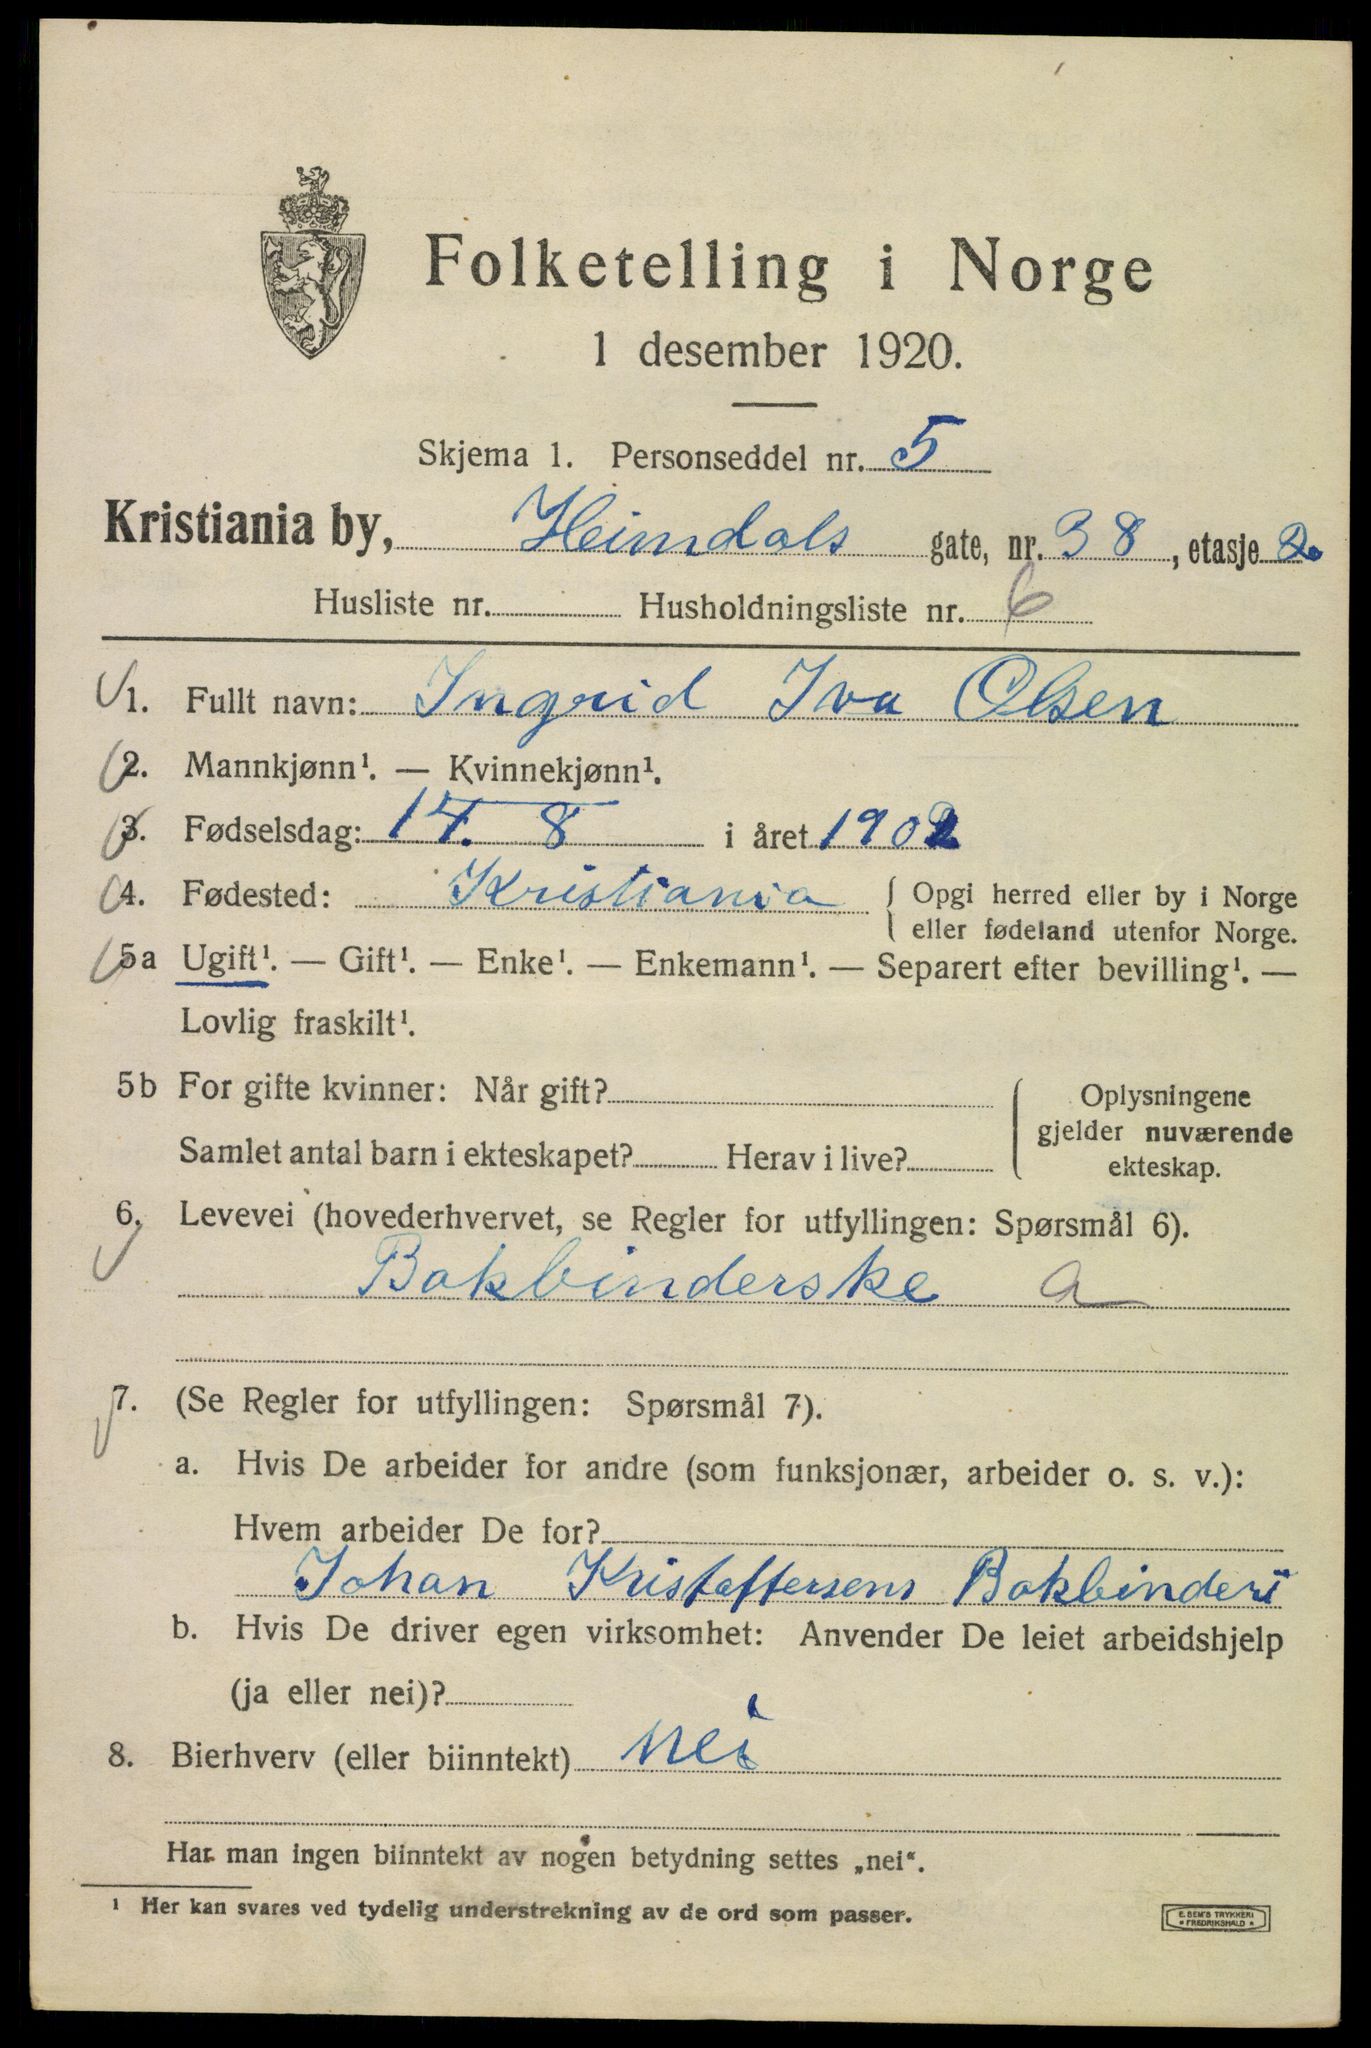 Folketelling i Norge
1 desember 1920.
Skjema 1. Personseddel nr. 5
Kristiania by, Heimdals gate, nr. 38, etasje 2.
Husliste nr. Husholdningsliste nr. 6
1. Fullt navn: Ingrid Iva Olsen
2. Mannkjønn¹. — Kvinnekjønn¹.
3. Fødselsdag: 14. 8 i året 1902
4. Fødested: Kristiania { Opgi herred eller by i Norge
eller fødeland utenfor Norge.
5a Ugift¹. — Gift¹. — Enke¹. — Enkemann¹. — Separert efter bevilling¹. —
Lovlig fraskilt¹.
5b For gifte kvinner: Når gift? { Oplysningene
gjelder nuværende
Samlet antal barn i ekteskapet? Herav i live? ekteskap.
6. Levevei (hovederhvervet, se Regler for utfyllingen: Spørsmål 6).
Bokbinderske a
7. (Se Regler for utfyllingen: Spørsmål 7).
a. Hvis De arbeider for andre (som funksjonær, arbeider o. s. v.):
Hvem arbeider De for?
Johan Kristoffersens Bokbinderi
b. Hvis De driver egen virksomhet: Anvender De leiet arbeidshjelp
(ja eller nei)?
8. Bierhverv (eller biinntekt) nei
Har man ingen biinntekt av nogen betydning settes „nei“.
¹ Her kan svares ved tydelig understrekning av de ord som passer.
E. SEM'S TRYKKERI
* FREDRIKSHALD *